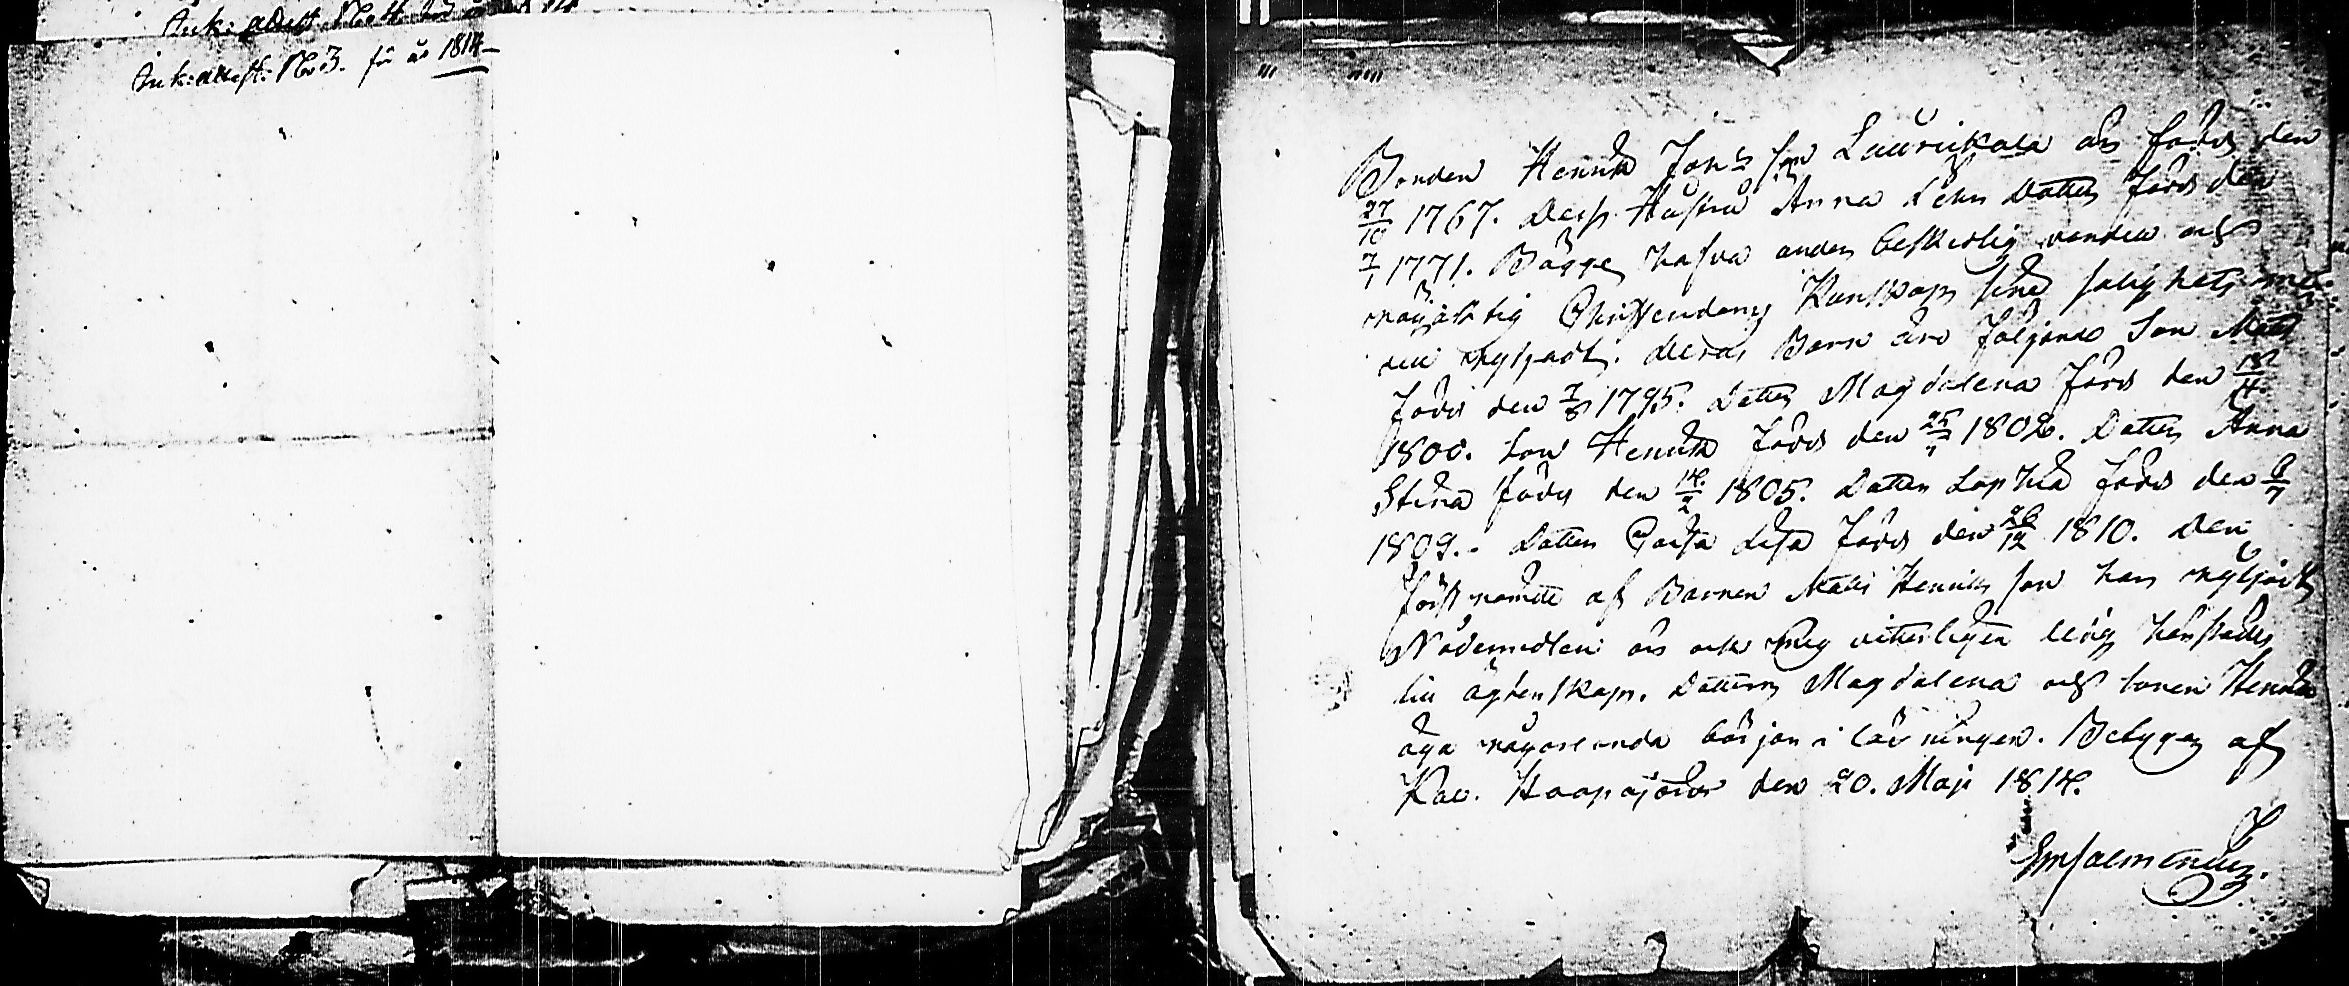 Ink: attest. No 3. för år 1814
Bonden Henrik Jons son Laurikala är född den
27/10 1767. Dess Hustru Anna Dotter född den
7/1 1771. Bägge hafva under beskedlig vandel och
nöjaktig Christendoms Kunskap sina salighets med-
nytjadt. Deras Barn äro följande Son Matts
född den 7/8 1795. Dotter Magdalena född den 18/4
1800. Son Henrik född den 25/7 1802. Dotter Anna
Stina född den 14/2 1805. Dotter Sophia född den 9/7
1809. Dotter Caisa Lisa född den 26/12 1810. Den
först nämde af Barnen Matts Henriks son har nytjadt
Nådemedlen är och mig vitterligen ledig
till ägtenskap. Dottern Magdalena och sonen Henrik
äga någorlunda början i läsningen. Betygar af
Haapajärvi den 20. Maji 1814.